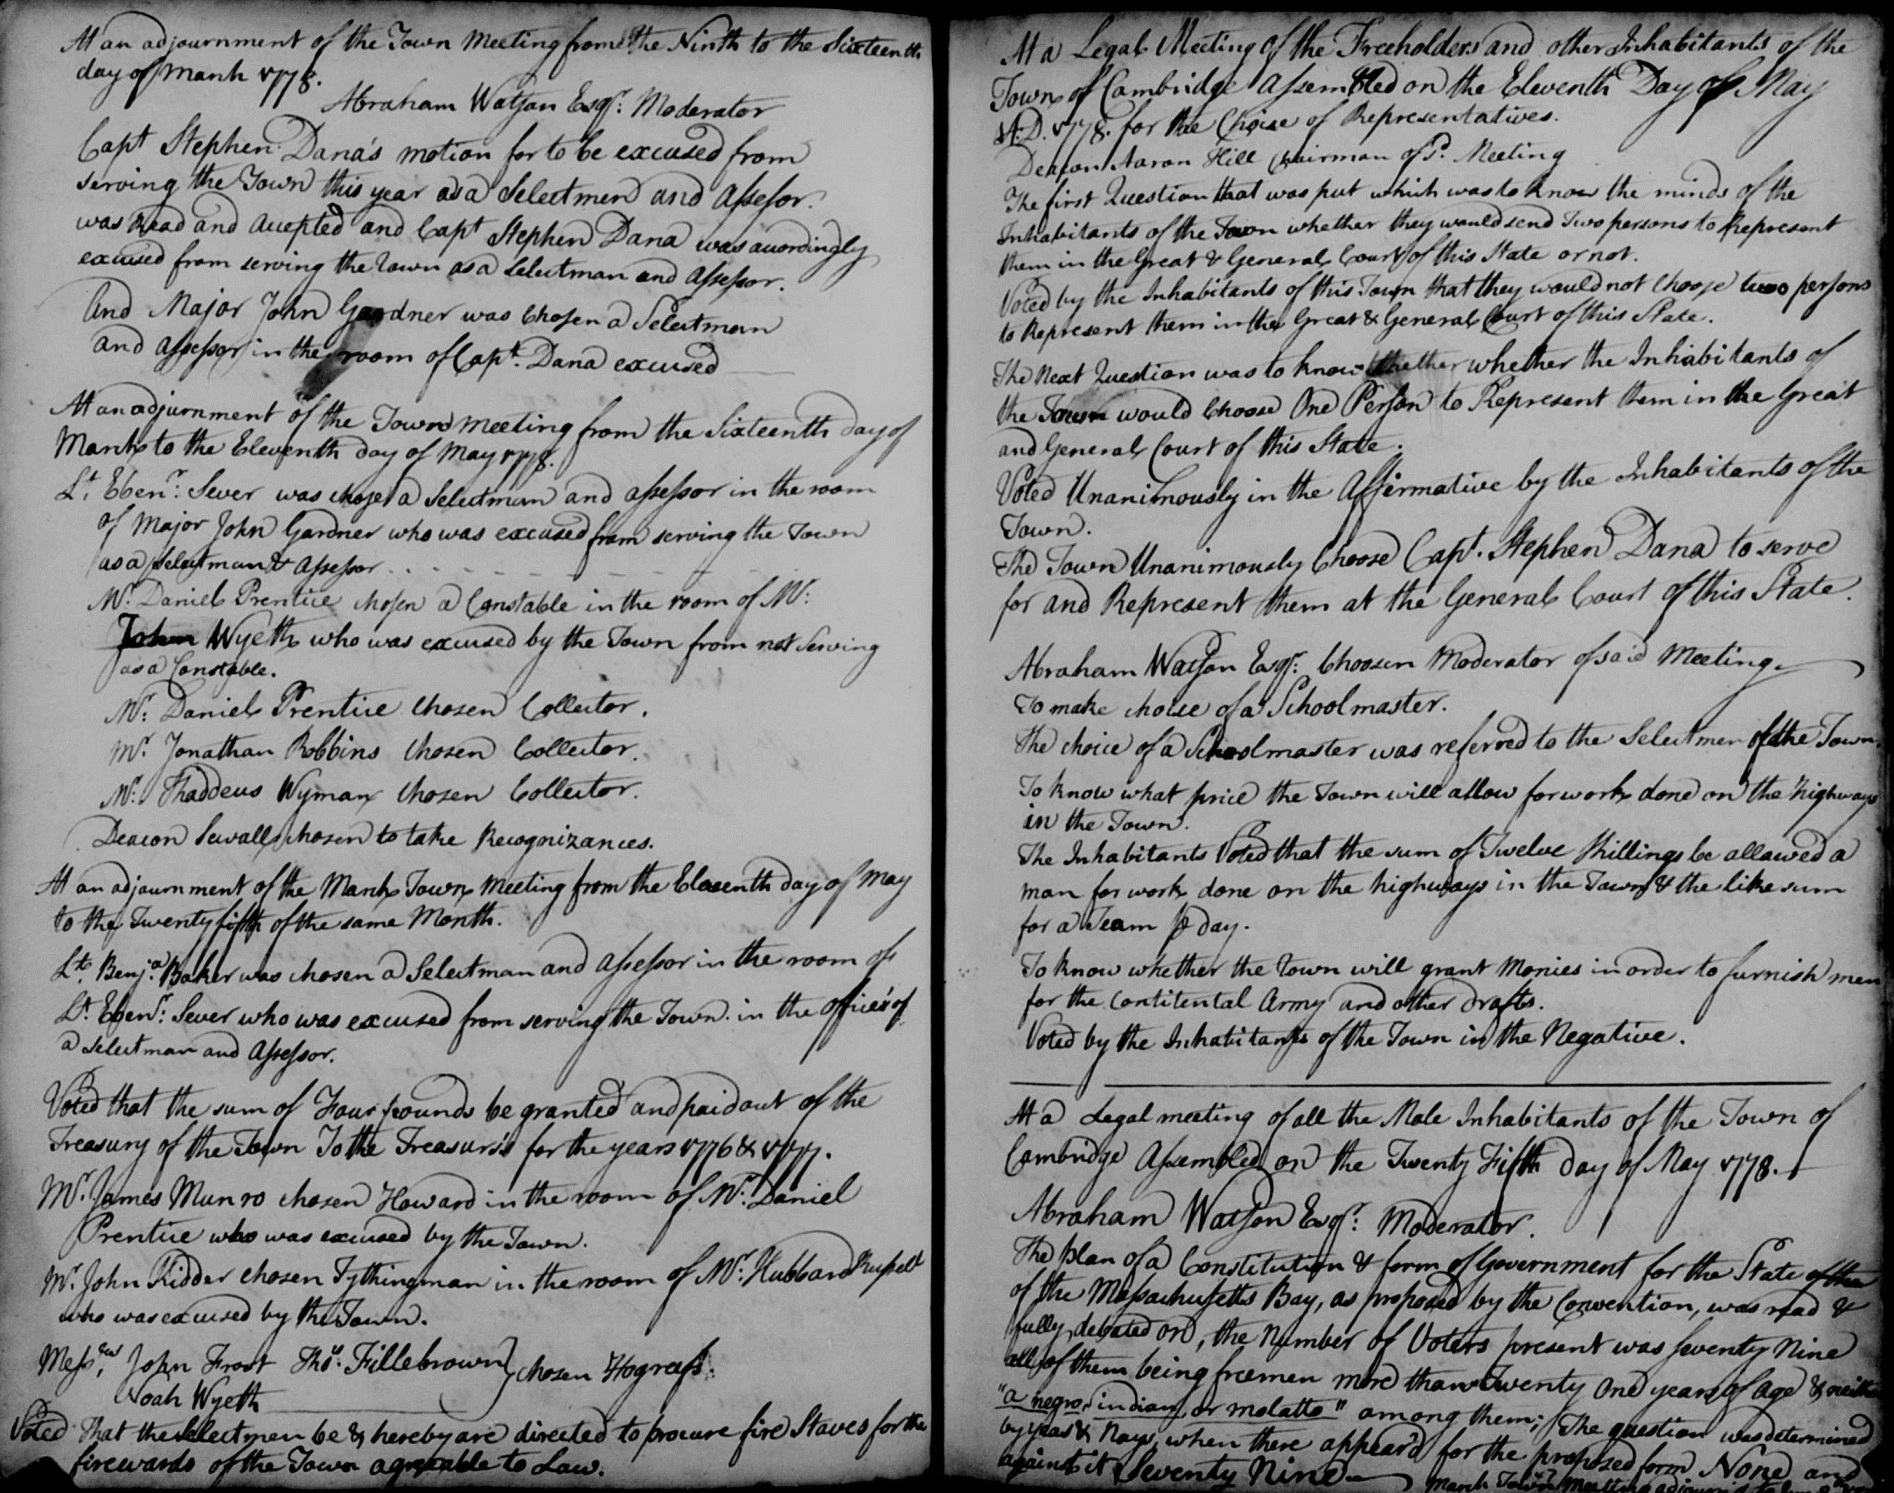 At an adjournment of the Town Meeting from the Ninth to the Sixteenth
day of March 1778.
Abraham Watson Esqr. Moderator
Capt Stephen Dana's motion for to be excused from
serving the Town this year as a Selectmen and Assessor.
was Read and accepted and Capt Stephen Dana was accordingly
excused from serving the town as a Selectman and Assessor.
And Major John Gardner was Chosen a Selectman
and assessor in the room of Capt. Dana excused
At an adjurnment of the Town meeting from the Sixteenth day of
March to the Eleventh day of May 1778.
Lt. Ebenr. Sever was chosen a Selectman and assessor in the room
of Major John Gardner who was excused from serving the Town
as a Selectman & Assessor
Mr. Daniel Prentice chosen a Constable in the room of Mr.
John Wyeth who was excused by the Town from not Serving
as a Constable.
Mr. Daniel Prentice chosen Collector.
Mr. Jonathan Robbins chosen Collector.
Mr. Thaddeus Wyman chosen Collector.
Deacon Sewall chosen to take Recognizances.
At an adjournment of the March Town Meeting from the Eleventh day of May
to the Twenty fifth of the same Month.
Lt. Benja. Baker was chosen a Selectman and assessor in the room of
Lt. Ebenr. Sever who was excused from serving the Town in the offices of
a Selectman and Assessor.
Voted that the sum of Four pounds be granted and paid out of the
Treasury of the Town To the Treasurer's for the years 1776 & 1777.
Mr. James Munro chosen Howard in the room of Mr. Daniel
Prentice who was excused by the Town.
Mr. John Kidder chosen Tythingman in the room of Mr. Hubbard Russell
who was excused by the Town.
Messrs. John Frost Thos. Fillebrown } chosen Hogreefs.
Noah Wyeth
Voted That the Selectmen be & hereby are directed to procure fire Staves for the
firewards of the Town agreeable to Law.
At a Legal Meeting of the Freeholders and other Inhabitants of the
Town of Cambridge Assembled on the Eleventh Day of May
A.D. 1778. for the Choise of Representatives.
Deacon Aaron Hill Chairman of sd. Meeting
The first Question that was put which was to know the minds of the
Inhabitants of the Town whether they would send Two persons to Represent
them in the Great & General Court of this State or not.
Voted by the Inhabitants of this Town that they would not Choose two persons
to Represent them in the Great & General Court of this State.
The Next Question was to know whether whether the Inhabitants of
the Town would Choose One Person to Represent them in the Great
and General Court of this State.
Voted Unanimously in the Affirmative by the Inhabitants of the
Town.
The Town Unanimously Choose Capt. Stephen Dana to serve
for and Represent them at the General Court of this State.
Abraham Watson Esqr. Choosen Moderator of said Meeting.
To make choise of a Schoolmaster.
The choice of a Schoolmaster was referred to the Selectmen of the Town.
To know what price the Town will allow for work done on the highways
in the Town.
The Inhabitants Voted that the sum of Twelve Shillings be allowed a
man for work done on the highways in the Town & the like sum
for a Team ⅌ day.
To know whether the Town will grant Monies in order to furnish men
for the Contitental Army and other drafts.
Voted by the Inhabitants of the Town in the Negative.
At a Legal meeting of all the Male Inhabitants of the Town of
Cambridge Assembled on the Twenty Fifth day of May 1778.
Abraham Watson Esqr. Moderator.
The plan of a Constitution & form of Government for the State of the
of the Massachusetts Bay, as proposed by the Convention, was read &
fully debated on, the number of Voters present was Seventy Nine
all of them being freemen more than Twenty One years of age & neither
"a negro, indian, or molatto" among them; The question was determined
by yeas & Nays, when there appear'd for the proposed form None and
against it Seventy Nine
March Town Meeting adjourn'd to